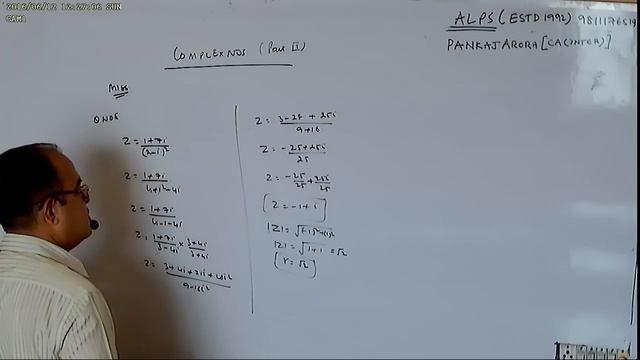 2016/06/12 12:27:06 SUN
CAM1
ALPS (ESTD 1992) 9811176519
PANKAJ ARORA [CA(INTER)]
COMPLEX NOS (Part II)
Misc
Q No 5
Z = 1+7i / (2-i)²
Z = 1+7i / 4+i²-4i
Z = 1+7i / 4-1-4i
Z = 1+7i / 3-4i × 3+4i / 3+4i
Z = 3+4i+21i+28i² / 9-16i²
Z = 3-28+25i / 9+16
Z = -25+25i / 25
Z = -25/25 + 25i/25
[Z = -1+i]
|Z| = √(-1)²+(1)²
|Z| = √1+1 = √2
[r = √2]